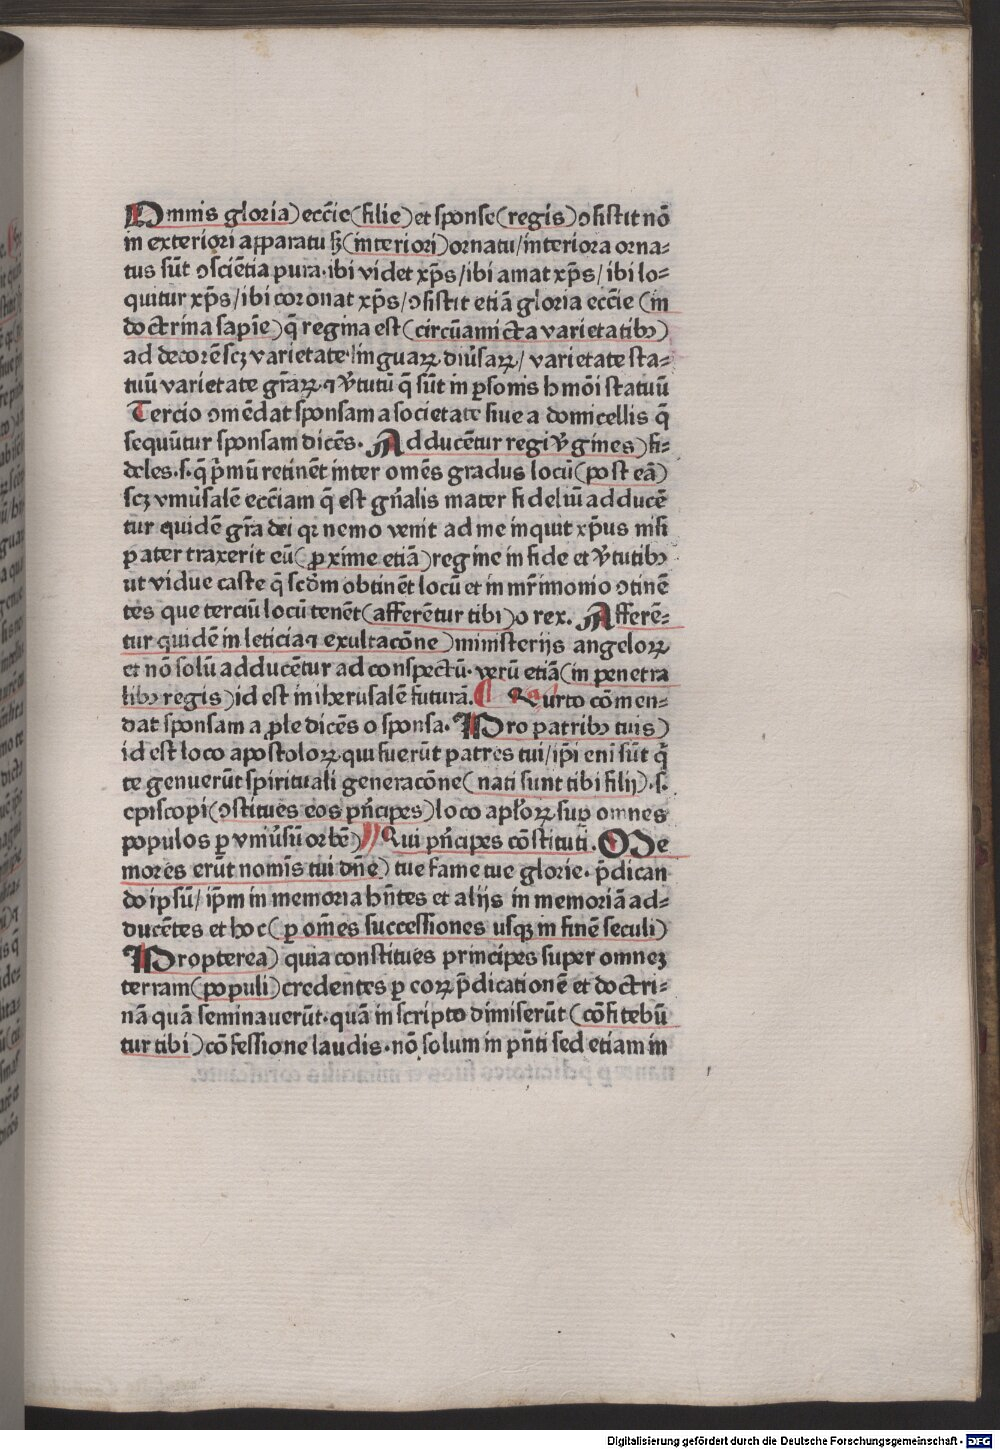 Omnis gloria) ecc̄ie (filie) et sponse (regis) ɔsistit nō
in exteriori apparatu sꝫ (interiori) ornatu / interiora orna⸗
tus sūt ɔsciētia pura· ibi videt xp̄s / ibi amat xp̄s / ibi lo⸗
quitur xp̄s / ibi coronat xp̄s / ɔsistit etiā gloria ecc̄ie (in
doctrina sapīe) q̄ regina est (circūamicta varietatibꝰ)
ad decorē scꝫ varietate linguaꝝ diu̓saꝝ / varietate sta⸗
tuū varietate gr̄aꝝ ⁊ v̓tutū q̄ sūt in ꝑsonis hmōi statuū
Tercio ɔmēdat sponsam a societate siue a domicellis q̄
sequūtur sponsam dicēs· Adducētur regi v̓gines) fi⸗
deles· s· q̄ p̄mū retinēt inter omēs gradus locū (post eā)
scꝫ vniu̓salē ecc̄iam q̄ est gn̄alis mater fideliū adducē
tur quidē gr̄a dei qꝛ nemo venit ad me inquit xp̄us nisi
pater traxerit eū (ꝓxime etiā) regine in fide et v̓tutibꝰ
ut vidue caste q̄ scd̄m obtinēt locū et in mr̄imonio ɔtinē
tes que terciū locū tenēt (afferētur tibi) o rex. Afferē⸗
tur quidē in leticia ⁊ exultacōne) ministerijs angeloꝝ
et nō solū adducētur ad conspectū· verū etiā (in penetra
libꝰ regis) id est in iherusalē futurā. ¶ Qurto cōmen⸗
dat sponsam a ꝓle dicēs o sponsa· Pro patribꝰ tuis)
id est loco apostoloꝝ qui fuerūt patres tui / ip̄i eni sūt q̄
te genuerūt spirituali generacōne (nati sunt tibi filij)· s·
episcopi (ɔstitues eos pn̄cipes) loco apl̄oꝝ suꝑ omnes
populos ꝑ vniu̓sū orbē) Qui pn̄cipes cōstituti. Me
mores erūt nominis tui dn̄e) tue fame tue glorie· p̄dican
do ipsū / ip̄m in memoria hn̄tes et alijs in memoriā ad⸗
ducētes et hoc (ꝑ omēs successiones usqꝫ in finē seculi)
Propterea) quia constitues principes super omneꝫ
terram (populi) credentes ꝑ eoꝝ p̄dicationē et doctri⸗
nā quā seminauerūt· quā in scripto dimiserūt (cōfitebū
tur tibi) cōfessione laudis· nō solum in pn̄ti sed etiam in
Digitalisierung gefördert durch die Deutsche Forschungsgemeinschaft - DFG